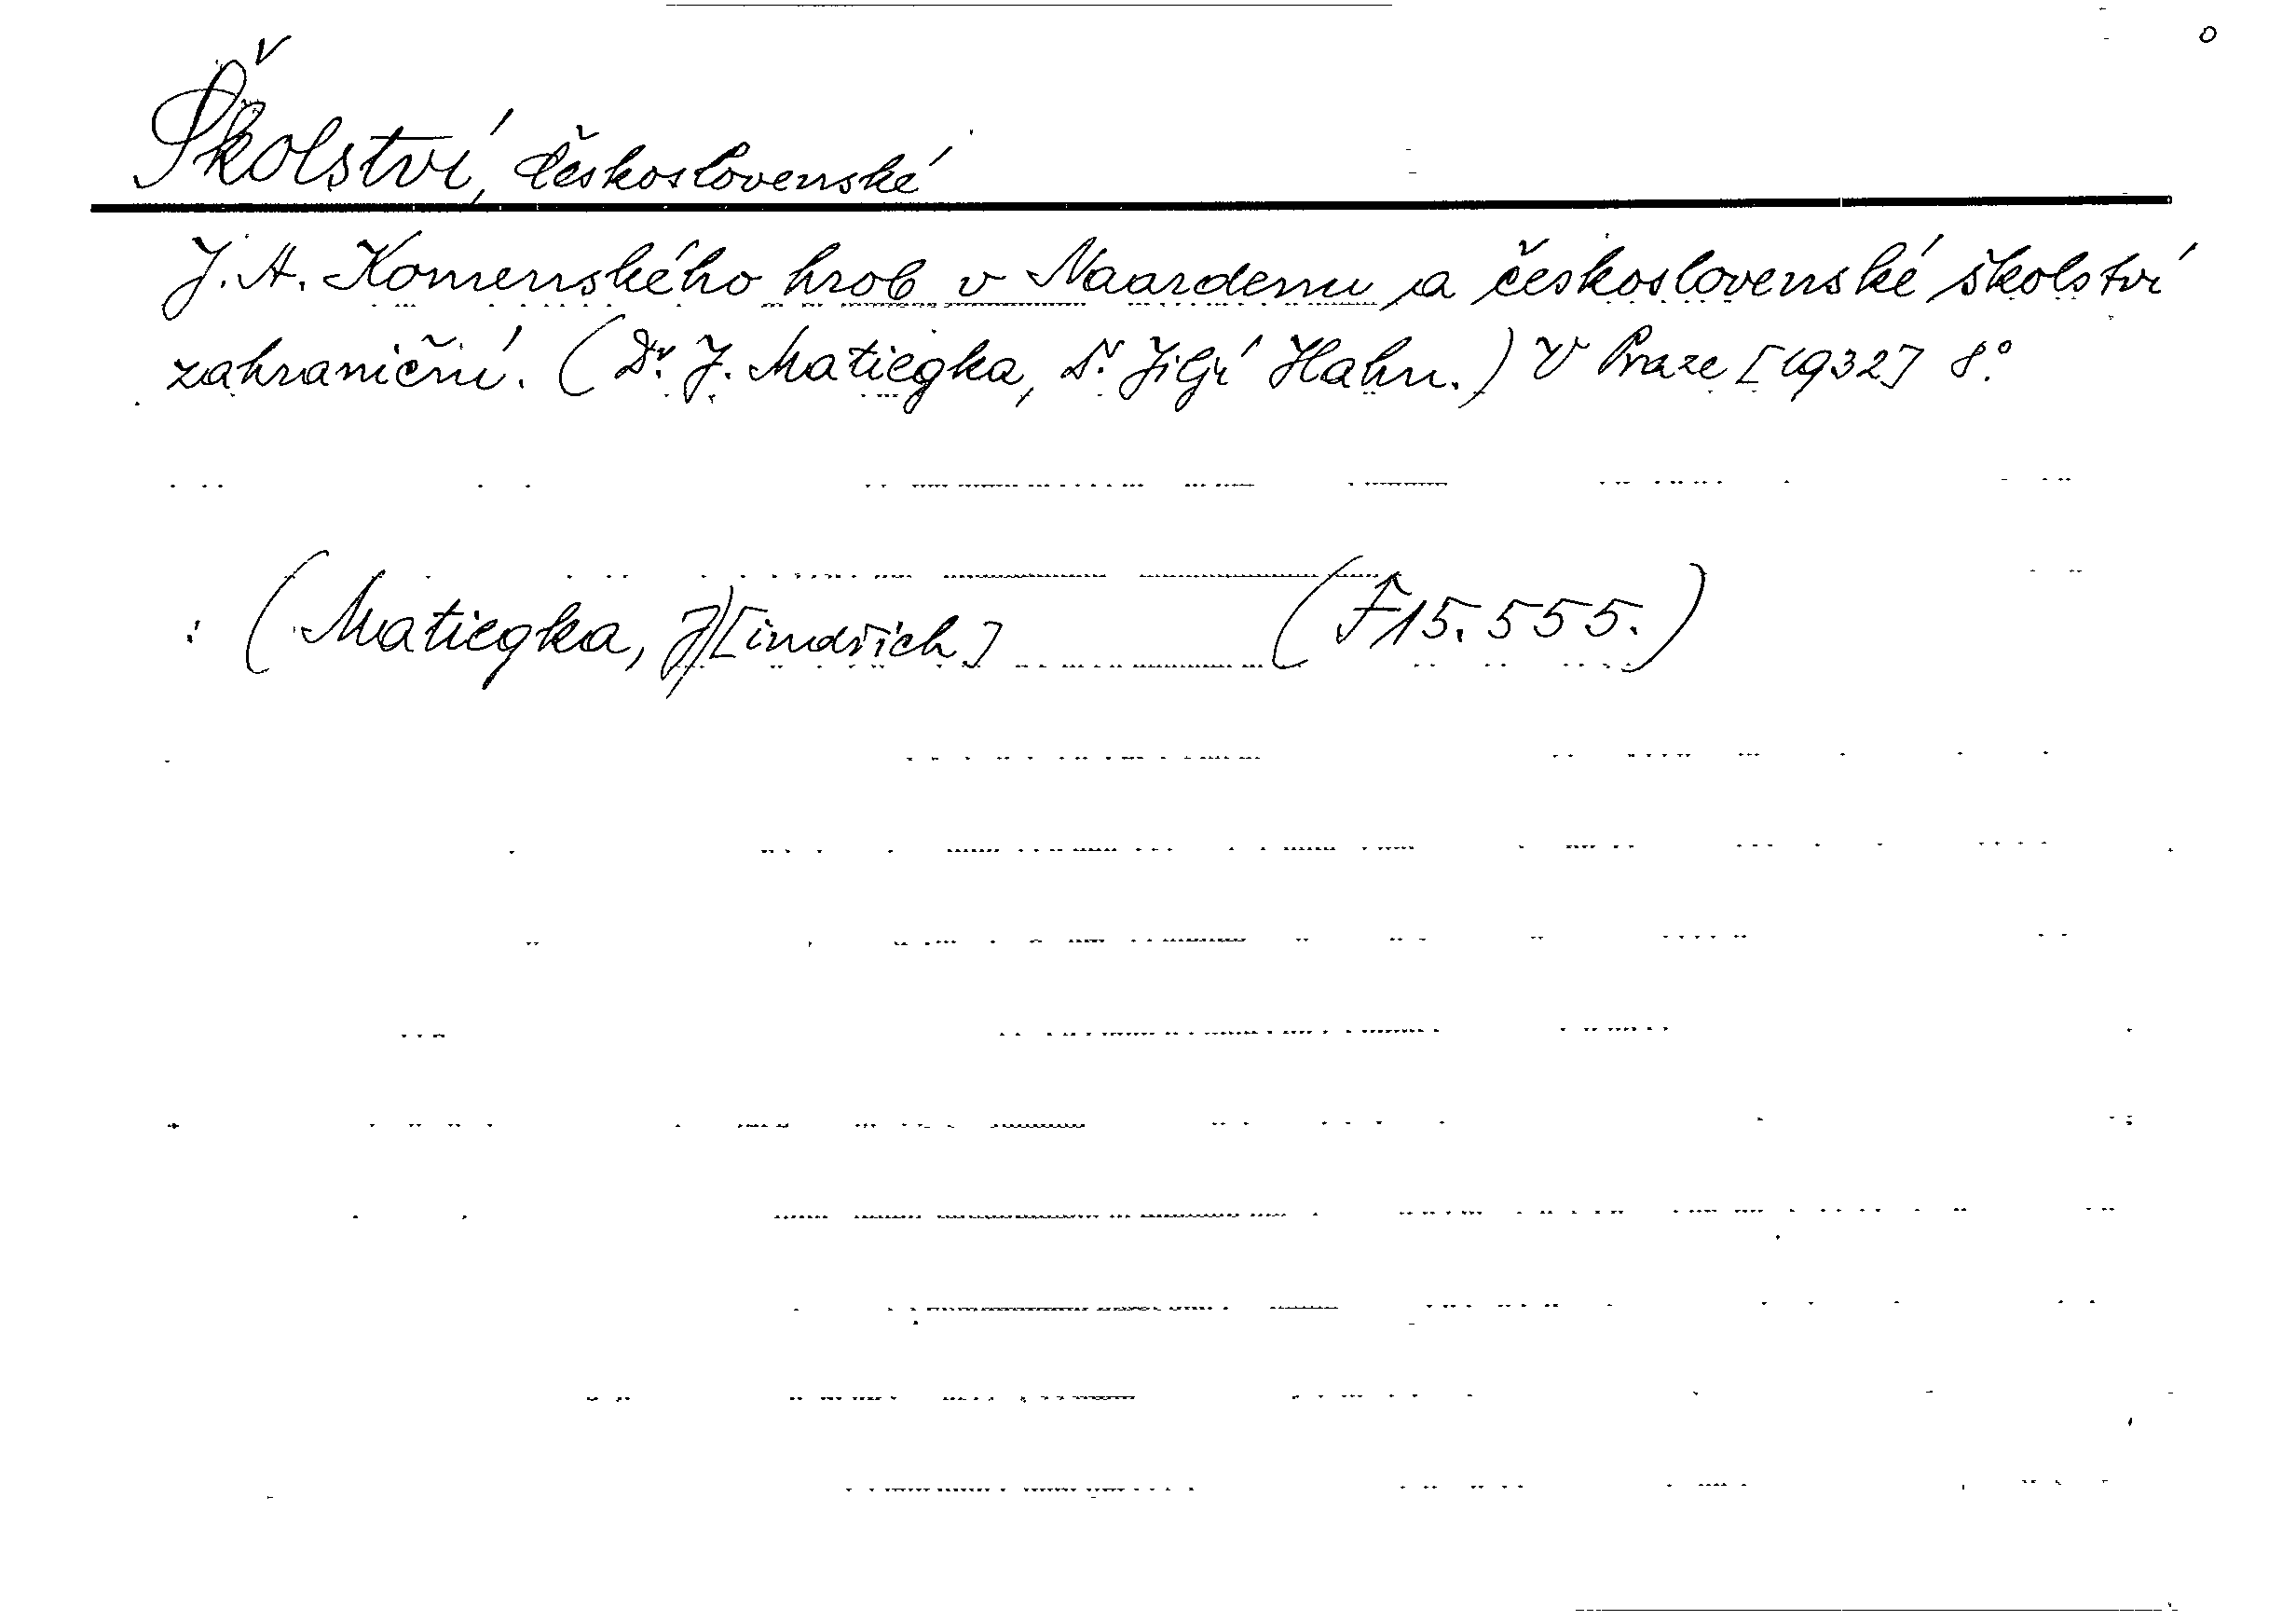 Školství, československé
J. A. Komenského hrob v Naardenu a československé školství
zahraniční. (Dr. J. Matiegka, Dr. Jiljí Hahn.) V Praze [1932] 8°.
: (Matiegka, J)[indřich] (F 15.555.)